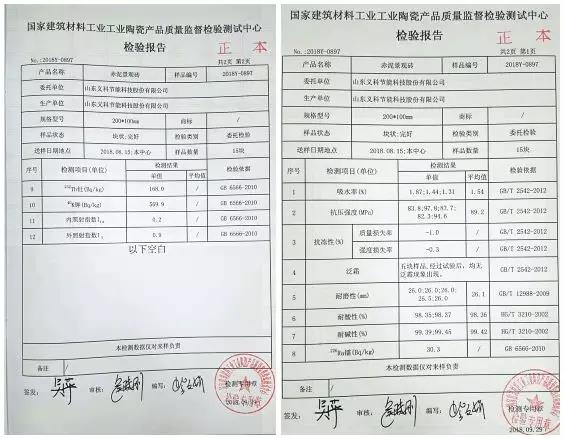 国家建筑材料工业工业陶瓷产品质量监督检验测试中心
检验报告
正 本
No.:2018Y-0897
共2页 第2页
产品名称 赤泥景观砖 样品编号 2018Y-0897
委托单位 山东义科节能科技股份有限公司
生产单位 山东义科节能科技股份有限公司
规格型号 200*100mm 商标 /
样品状态 块状;完好 检验类别 委托检验
送样日期地点 2018.08.15;本中心 样品数量 15块
序号 检测项目(单位) 检测结果 检验依据
单值 平均值
9 ²³²Th钍(Bq/kg) 168.0 / GB 6566-2010
10 ⁴⁰K钾(Bq/kg) 569.9 / GB 6566-2010
11 内照射指数I 0.2 / GB 6566-2010
12 外照射指数I 0.9 / GB 6566-2010
以下空白
本检测数据仅对来样负责
备注 /
签发: 审核: 编写: 检测专用章
国家建筑材料工业工业陶瓷产品质量监督检验测试中心
检验报告
正 本
No.:2018Y-0897
共2页 第1页
产品名称 赤泥景观砖 样品编号 2018Y-0897
委托单位 山东义科节能科技股份有限公司
生产单位 山东义科节能科技股份有限公司
规格型号 200*100mm 商标 /
样品状态 块状;完好 检验类别 委托检验
送样日期地点 2018.08.15;本中心 样品数量 15块
序号 检测项目(单位) 检测结果 检验依据
单值 平均值
1 吸水率(%) 1.87;1.44;1.31 1.54 GB/T 2542-2012
2 抗压强度(MPa) 83.8;97.8;87.7; 82.3;94.6 89.2 GB/T 2542-2012
3 抗冻性(%) 质量损失率 -1.0 / GB/T 2542-2012
强度损失率 -0.3 / GB/T 2542-2012
4 泛霜 五块样品,经过试验后,均无泛霜现象出现。 GB/T 2542-2012
5 耐磨性(mm) 26.0;26.0;26.0; 26.5;26.0 26.1 GB/T 12988-2009
6 耐酸性(%) 98.35;98.37 98.36 HG/T 3210-2002
7 耐碱性(%) 99.39;99.45 99.42 HG/T 3210-2002
8 ²²⁶Ra镭(Bq/kg) 30.3 / GB 6566-2010
本检测数据仅对来样负责
备注 /
签发: 审核: 编写: 检测专用章
2018.09.29